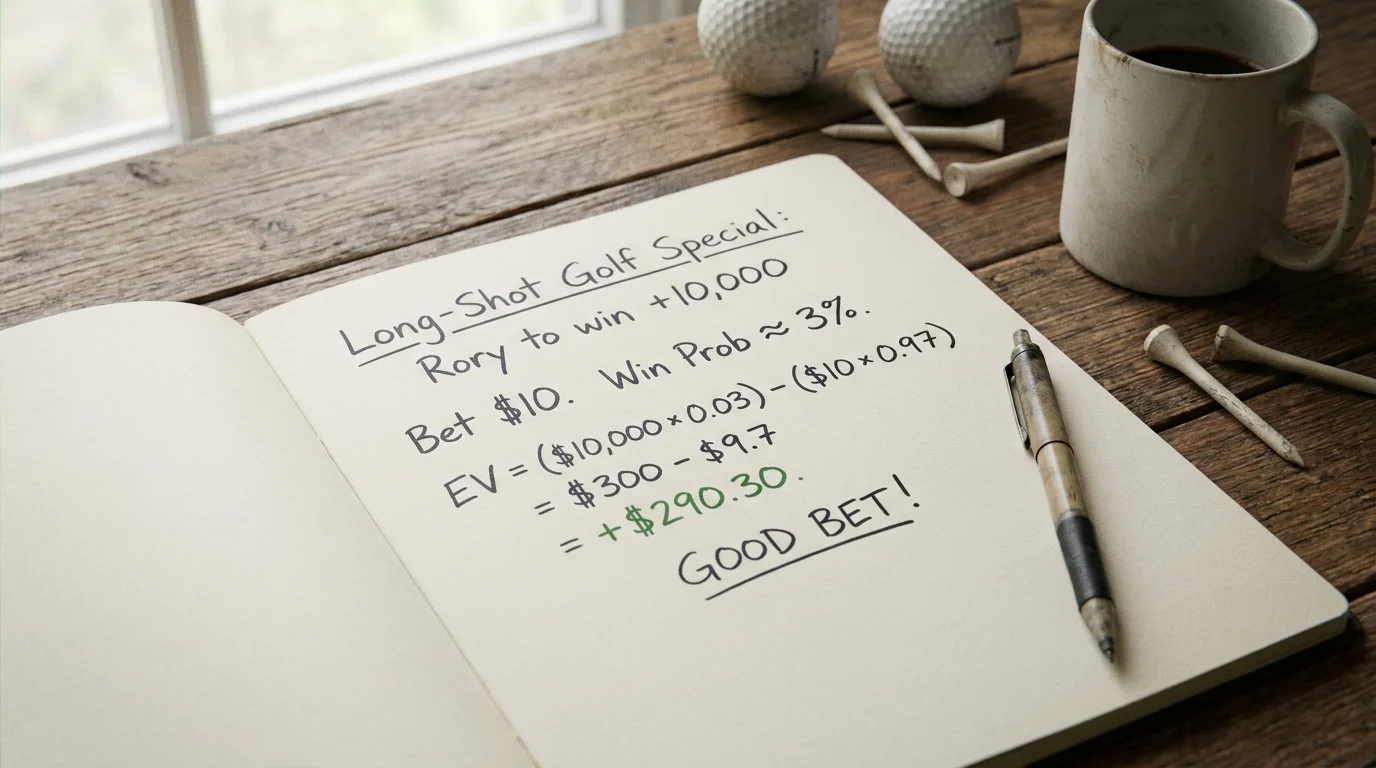 Long-Shot Golf Special:
Rory to win +10,000
Bet $10. Win Prob ≈ 3%.
EV = ($10,000 × 0.03) - ($10 × 0.97)
= $300 - $9.7
= +$290.30.
GOOD BET!